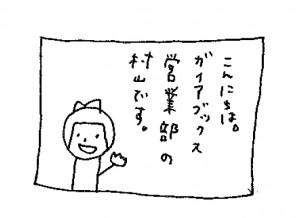 こんにちは。
ガイアブックス
営業部の
村山です。